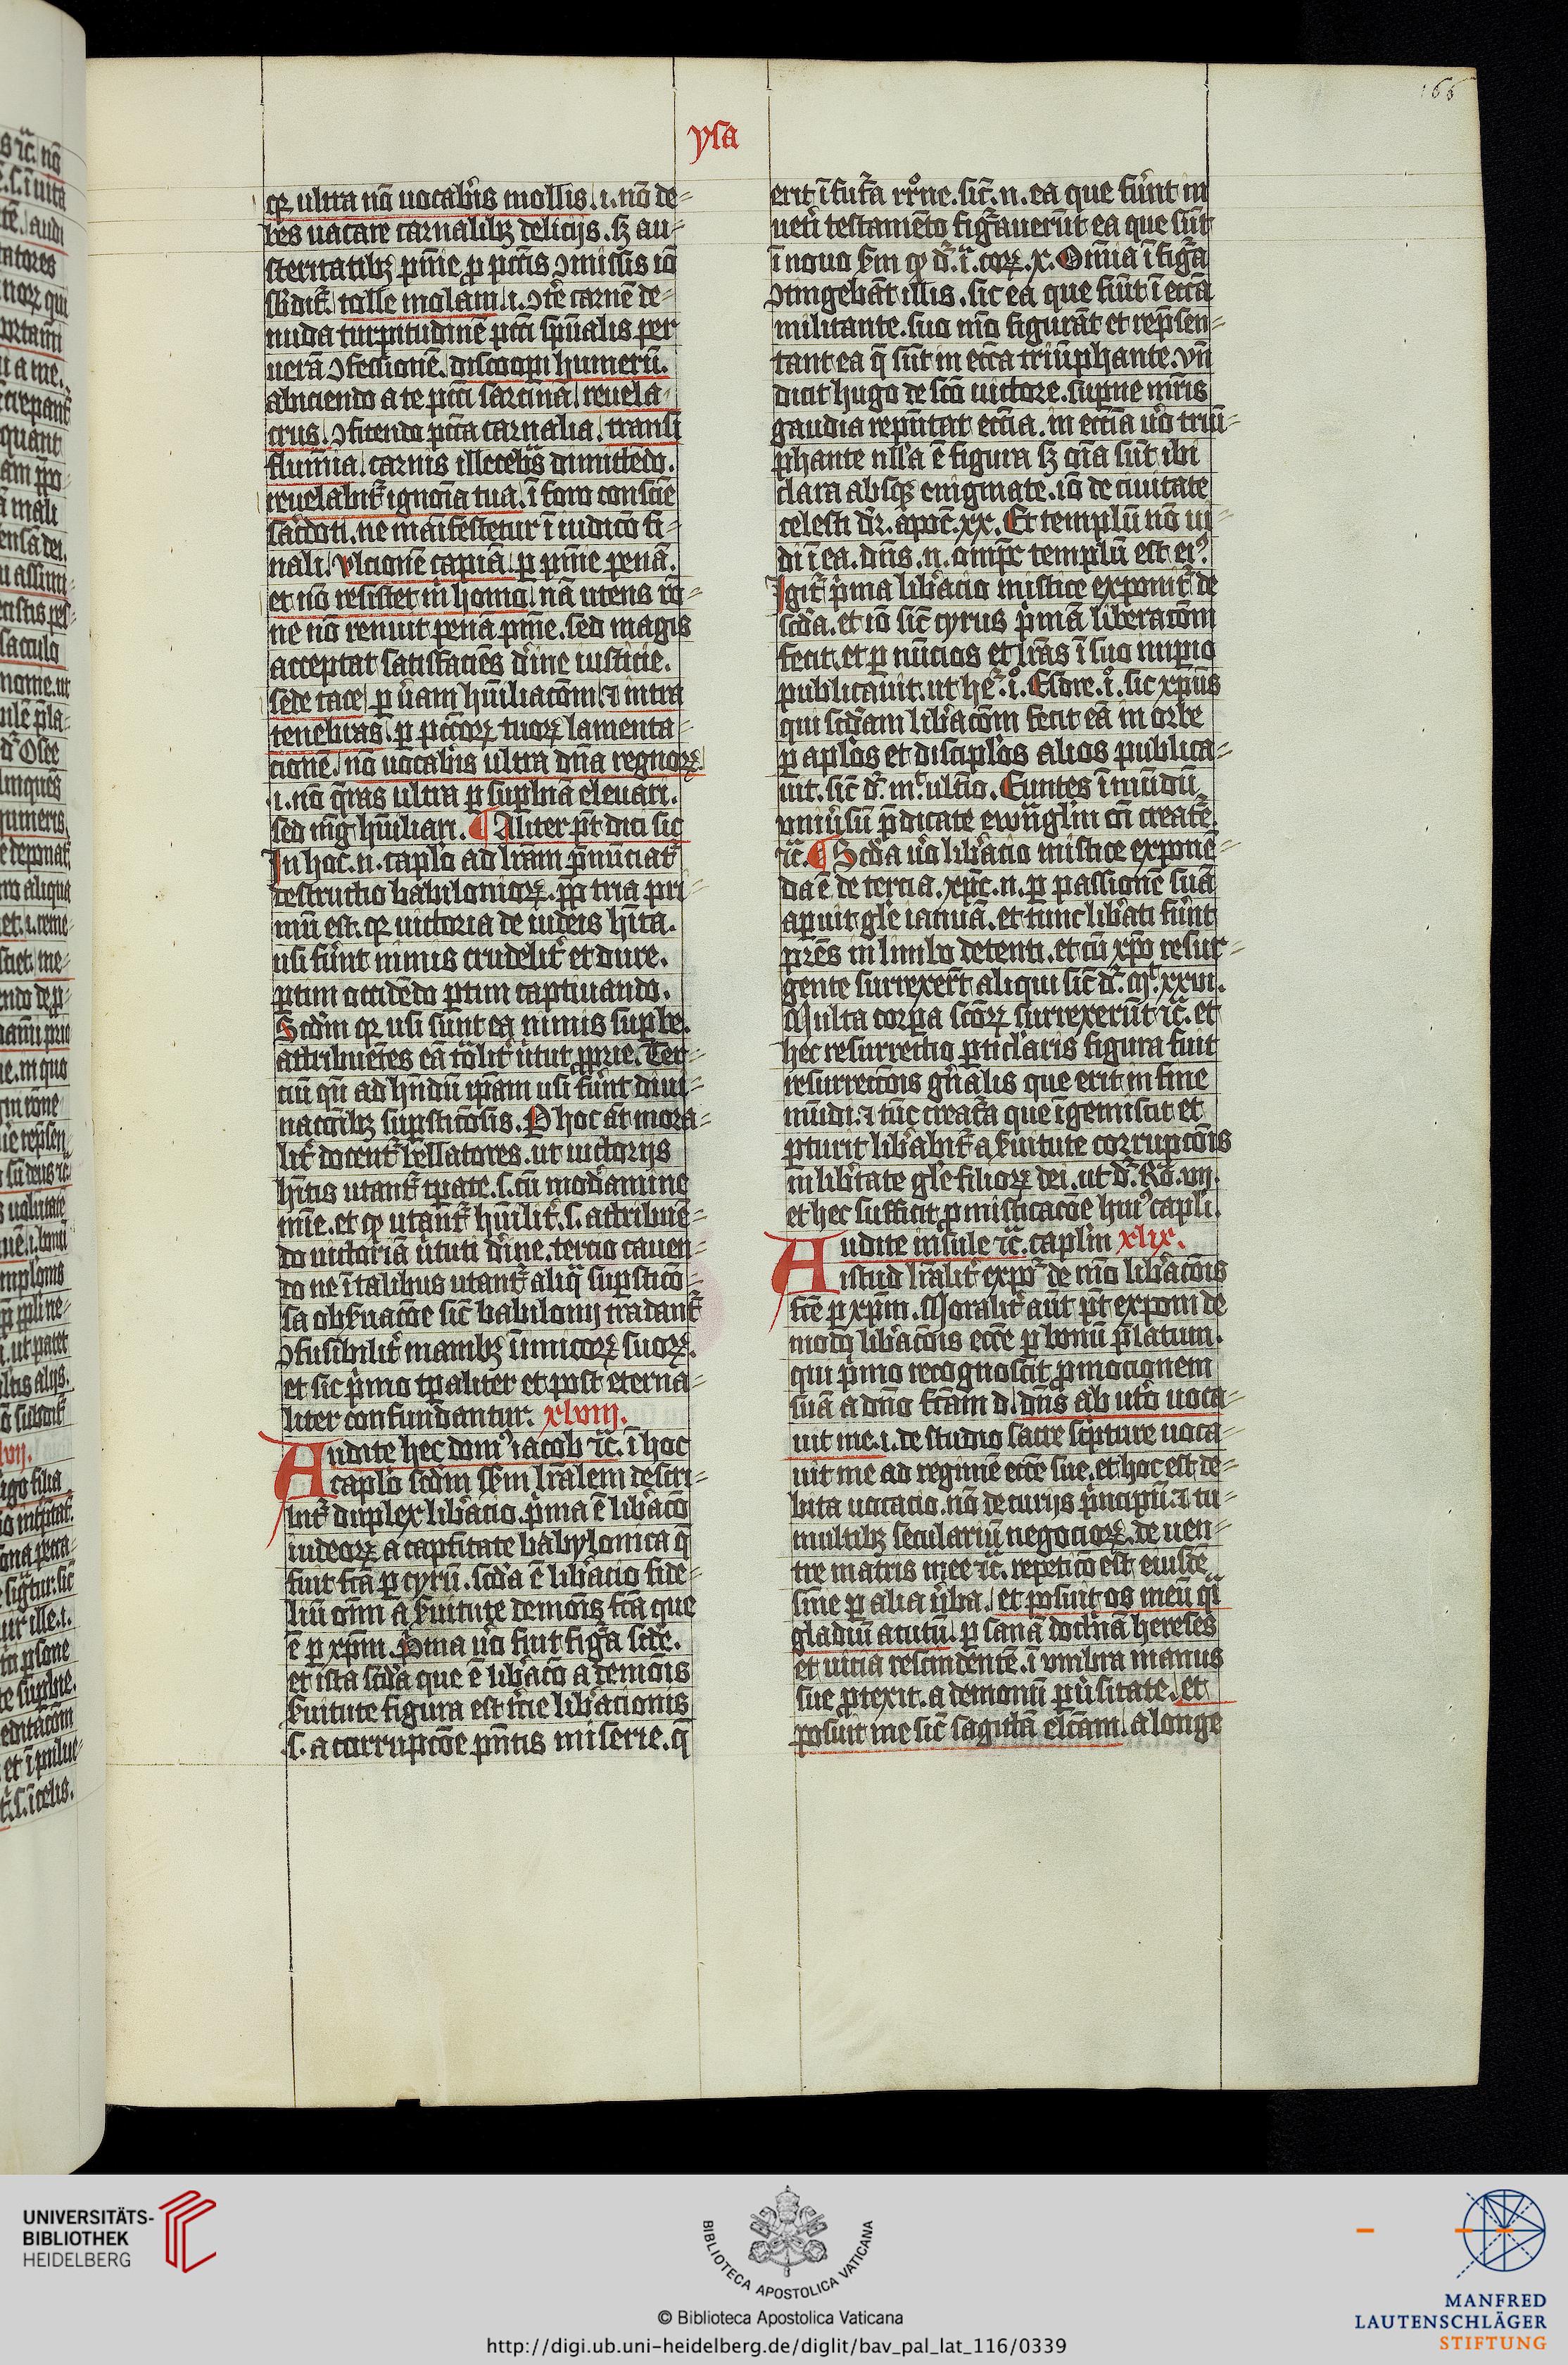 166
ysa
qꝛ ultra nō uocab'is mollis .i. nō de-
bes uacare carnalibꝫ delicijs. sꝫ au-
steritatibꝫ pn̄ie ꝓ pctīs ꝯmissis iō
sb̄dit᷑ tolle molam .i. ꝯt'e carnē de-
nuda turpitudinē pcti sp̄ualis per
uerā ꝯfessionē. discoopi humerū.
abiciendo a te pcti sarcinā reuela
crus. ꝯfitendo pctā carnalia. transi
flumīa. carnis illecebᵃs dimittēdo.
reuelabit᷑ ignoīa tua. ī foro consciē
sac'doti. ne maīfestetur ī iudicō fi-
nali. Vlcionē capiā ꝑ pn̄ie penā.
et nō resistet m̄ homo nā utens rō-
ne nō rennit penā pn̄ie. sed magis
acceptat satisfaciēs d'ine iusticie.
sede tace ꝑ u'am hūiliacōm ⁊ intra
tenebras. ꝑ pctōrꝫ tuorꝫ lamenta-
cionē. nō uocab'is ultra dn̄a regnorꝫ.
.i. nō q̄ras ultra ꝑ sup̱biā eleuari.
sed mḡ hūiliari. ¶ Aliter pt̄ dici sic
In hoc .n. capl'o ad lr̄am p̄nūciat᷑
destructio babiloniorꝫ. ꝓp tria pri-
mū est. qꝛ uictoria de iudeis h'ita.
usi fūnt nimis crudelit' et dure.
ꝑtim occidēdo ꝑtim captiuando.
Scd̄m qꝛ usi sunt ea nimis suꝑbe.
attribuētes eā tōlit' u'tut ꝓprie. Ter-
ciū qꝛ ad hn̄dū ip̄am usi fūnt diui-
nacōibꝫ suꝑsticōsis. P hoc āt mora-
lit' docent᷑ bellatores. ut uictorijs
hīt̄is utant᷑ tꝑate. s. cū modamine
mīe. et ꝙ utant᷑ hūilit'. s. attribuē-
do uictoriā u'tuti d'ine. tercio cauen-
do ne ī talibus utant᷑ aliqᵃ suꝑsticō-
sa obs'uacōe sic̄ babilonij tradant᷑
ꝯfusibilit' manibꝫ inimicorꝫ suorꝫ.
et sic p'mo tꝑaliter et post eterna-
liter confundantur. xlviij.
Audite hec domꝰ iacob ⁊c̄. ī hoc
capl'o scd̄m sn̄m lr̄alem descri-
bit᷑ duplex lib'acio. p'ma ē lib'acō
iudeorꝫ a captiitate babylonica q̄
fuit fctā ꝑ cyrū. scd̄a ē lib'acio fide-
liū om̄i a s'uitute demōis fctā que
ē ꝑ xp̄m. P'ma u'o fuit figᵃ scd̄e.
et ista scd̄a que ē lib'acō a demōis
s'uitute figura est t'cie lib'acionis
s. a corrupcōe pn̄tis miserie. q̄
erit ī fut'a rr̄one. sic̄ .n. ea que fūnt in
uet'i testamēto figᵃuerūt ea que sūt
ī nouo s'm ꝙ d'r .i. corꝫ. x. Omīa ī figᵃ
ꝯtingebāt illis. sic ea que fiūt ī ecc̄a
militante. suo mō figurāt et rep̄sen-
tant ea q̄ sūt in ecc̄a triūphante. vn̄
dicit hugo de sc̄o uictore. suꝑne mr̄is
gaudia rep̄ntat ecc̄ia. in ecc̄ia u'o triū-
phante nll'a ē figura sꝫ oīa sūt ibi
clara absqꝫ enigmate. iō de ciuitate
celesti d'r. apoc̄. xx. Et templū nō ui-
di ī ea. dn̄s .n. omp̄s templū est eiꝰ.
Igit' p'ma lib'acio mistice exponit᷑ de
scd̄a. et iō sic̄ cyrus p'mā liberacōm
fecit. et ꝑ nūcios et lr̄as ī suo imꝑio
publicauit. ut h'r .i. Esdre. i. sic xp̄us
qui scd̄am lib'acōm fecit eā in orbe
ꝑ apl'os et discipl'os alios publica-
uit. sic̄ d'r mr̄ ultīo. Euntes ī mūdū
vniu'sū p̄dicate ew̄ngl'm oī creat'e.
⁊c̄. ¶ Scd̄a u'o lib'acio mistice exponē-
da ē de tercia. xp̄c .n. ꝑ passionē suā
aꝑuit gl'e ianuā. et tunc lib'ati fūnt
pr̄es in limbo detenti. et cū xp̄o resur-
gente surrexer̄t aliqui sic̄ d'r mᵗ. xxvii.
Multa corꝑa sc̄orꝫ surrexerūt ⁊c̄. et
hec resurrectio ꝑticl'aris figura fuit
resurrectōis gn̄alis que erit in fine
mūdi. ⁊ tūc creat'a que īgemiscit et
ꝑturit lib'abit᷑ a s'uitute corrupcōis
in lib'tate gl'e filiorꝫ dei. ut d'r Ro. viij.
et hec sufficit ꝓ misticacōe huiꝰ capl'i.
Audite insule ⁊c̄. capl'm xlix.
istud lr̄alit' expō' de mō lib'acōis
fc̄e ꝑ xp̄m. Moralit' aūt pt̄ exponi de
modo lib'acōis ecc̄e ꝑ bonū p̄latum.
qui p'mo recognoscit ꝓmocionem
suā a dn̄o fc̄am d. dn̄s ab ut'o uoca-
uit me .i. de studio sacre sc'pture uoca-
uit me ad regimē ecc̄e sue. et hoc est de-
bita uocacio. nō de curijs p'ncipū. ⁊ tu-
multibꝫ seculariū negociorꝫ. de uen-
tre matris mee ⁊c̄. repeticō est eiusdē
sn̄ie ꝑ alia u'ba. et posuit os meū qᵃi
gladiū acutū. ꝑ sanā doct'nā hereses
et uicia rescindentē. ī vmbra manus
sue ꝓtexit. a demonū ꝑu'sitate. et
posuit me sic̄ sagittā elc̄am. a longe
UNIVERSITÄTS-
BIBLIOTHEK
HEIDELBERG
BIBLIOTECA APOSTOLICA VATICANA
© Biblioteca Apostolica Vaticana
http://digi.ub.uni-heidelberg.de/diglit/bav_pal_lat_116/0339
MANFRED
LAUTENSCHLÄGER
STIFTUNG